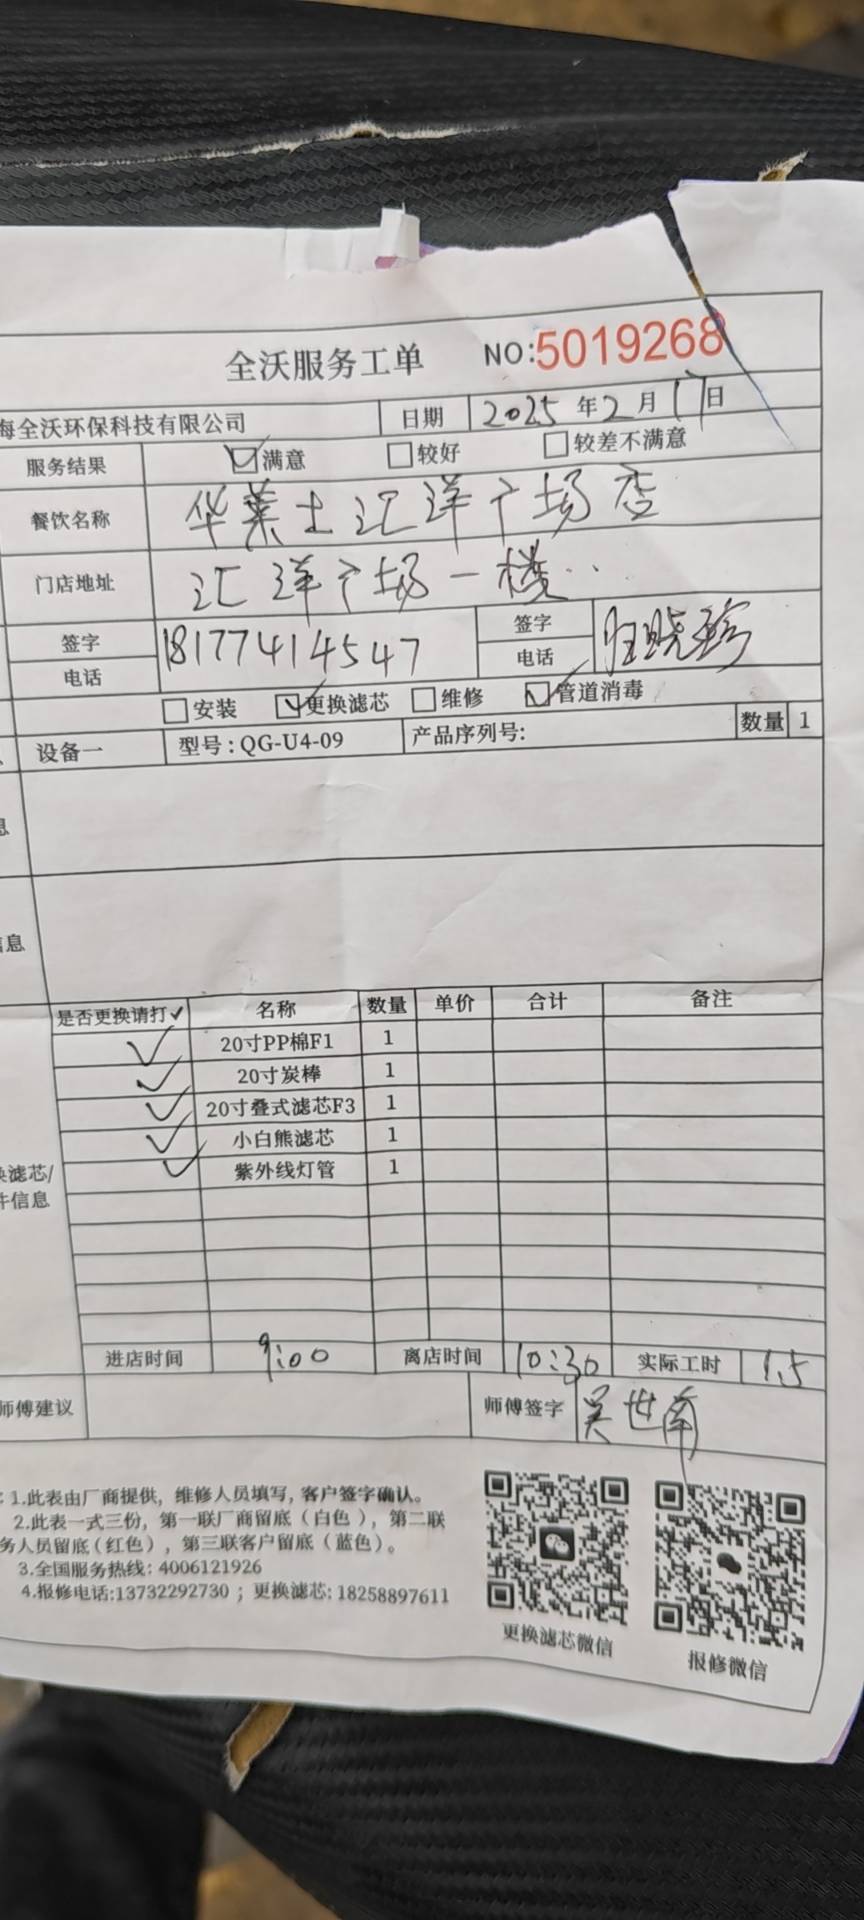 全沃服务工单 NO:5019268
海全沃环保科技有限公司 日期 2025年2月17日
服务结果 满意 较好 较差不满意
餐饮名称 华莱士汇洋广场店
门店地址 汇洋广场一楼..
签字 电话 18177414547 签字 电话 汪晓珍
安装 更换滤芯 维修 管道消毒
设备一 型号:QG-U4-09 产品序列号: 数量 1
息
信息
是否更换请打✓ 名称 数量 单价 合计 备注
✓ 20寸PP棉F1 1
✓ 20寸炭棒 1
✓ 20寸叠式滤芯F3 1
✓ 小白熊滤芯 1
✓ 紫外线灯管 1
换滤芯/
件信息
进店时间 9:00 离店时间 10:30 实际工时 1.5
师傅建议 师傅签字 吴世南
:1.此表由厂商提供，维修人员填写，客户签字确认。
2.此表一式三份，第一联厂商留底（白色），第二联
务人员留底(红色），第三联客户留底（蓝色）。
3.全国服务热线: 4006121926
4.报修电话:13732292730；更换滤芯: 18258897611
更换滤芯微信
报修微信